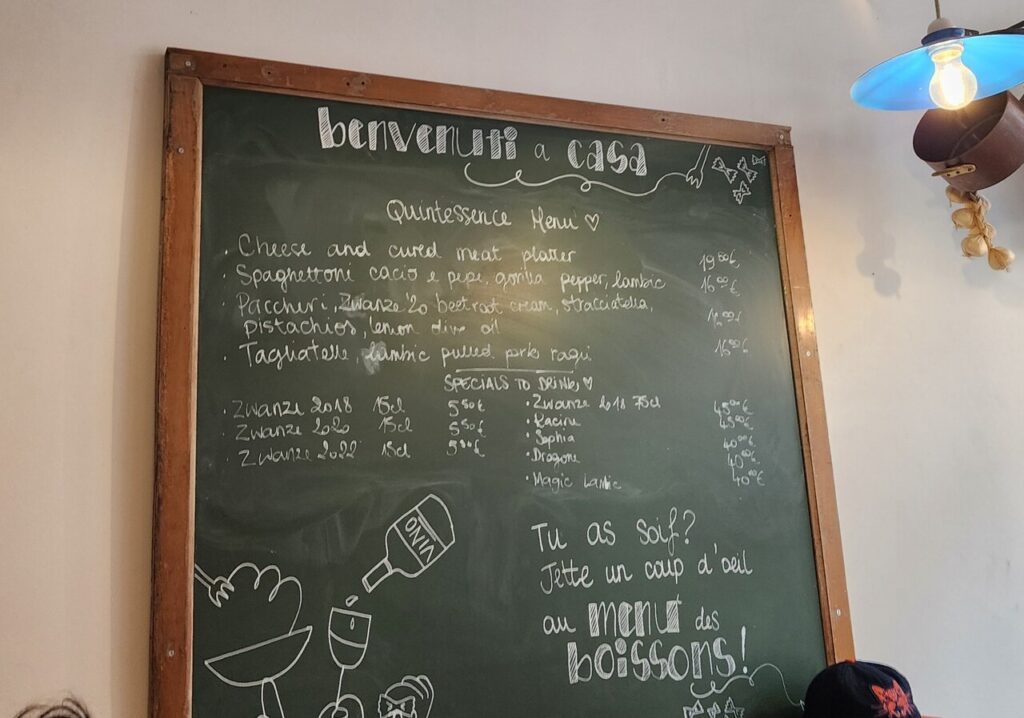 benvenuti a casa
Quintessence Menu ♡
• Cheese and cured meat platter 19.00€
• Spaghettoni cacio e pepe gorilla pepper, lambic 16.00€
• Paccheri, Zwanze '20 beetroot cream, stracciatella,
pistachios, lemon olive oil
• Tagliatelle, lambic pulled pork ragù
SPECIALS TO DRINK ♡
• Zwanze 2018 15cl 5.50€
• Zwanze 2020 15cl 5.50€
• Zwanze 2022 15cl 5.50€
• Zwanze 2018 75cl 45.00€
• Racine 45.00€
• Sophia 40.00€
• Dragone 40.00€
• Magic Lambic 40.00€
VINO
Tu as soif?
Jette un coup d'oeil
au menu des
boissons!